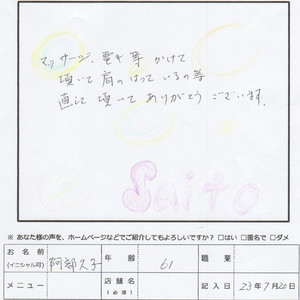 マッサージ、電気等かけて
頂いて肩のはっているの等
直して頂いてありがとうございます。
Saito
※あなた様の声を、ホームページなどでご紹介してもよろしいですか？ □はい □匿名で □ダメ
お名前 (イニシャル可) 阿部久子 年齢 61 職業
メニュー 店舗名 (必須) 記入日 23年7月20日